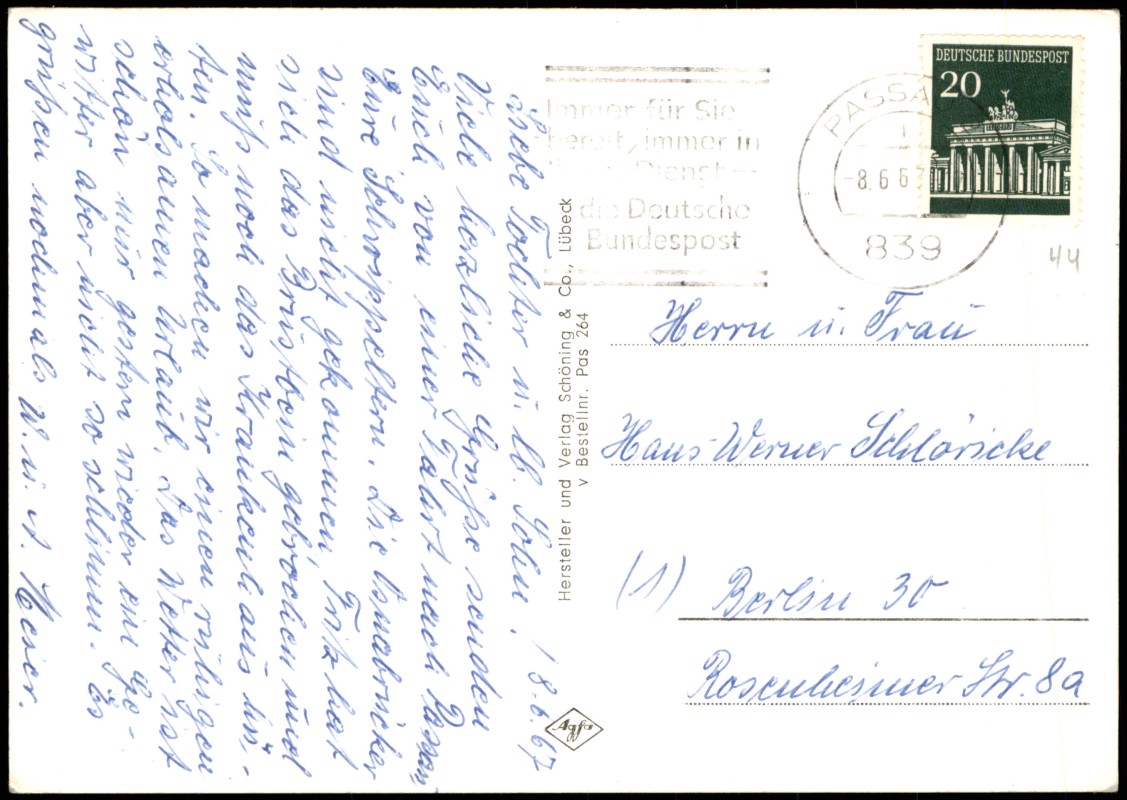 Liebe Tochter u. lb. Sohn. / 8.6.67
Viele herzliche Grüße senden
Euch von einer Fahrt nach Passau
Eure Schrippeltern. Die Osnabrücker
sind nicht gekommen, Fritz hat
sich das Brustbein gebrochen und
muß noch das Krankenhaus hü-
ten. So machen wir einen ruhigen
erholsamen Urlaub. Das Wetter ist
schön nur gestern wieder ein Ge-
witter aber nicht so schlimm. Es
grüßen nochmals W. u. A.
Hersteller und Verlag Schöning & Co., Lübeck
v Bestellnr. Pas 264
Agfa
Immer für Sie
bereit, immer in
Dienst –
die Deutsche
Bundespost
PASSA
-8.6.67
839
DEUTSCHE BUNDESPOST
20
44
Herrn u. Frau
Hans-Werner Schlöricke
(1) Berlin 30
Rosenheimer Str. 8a